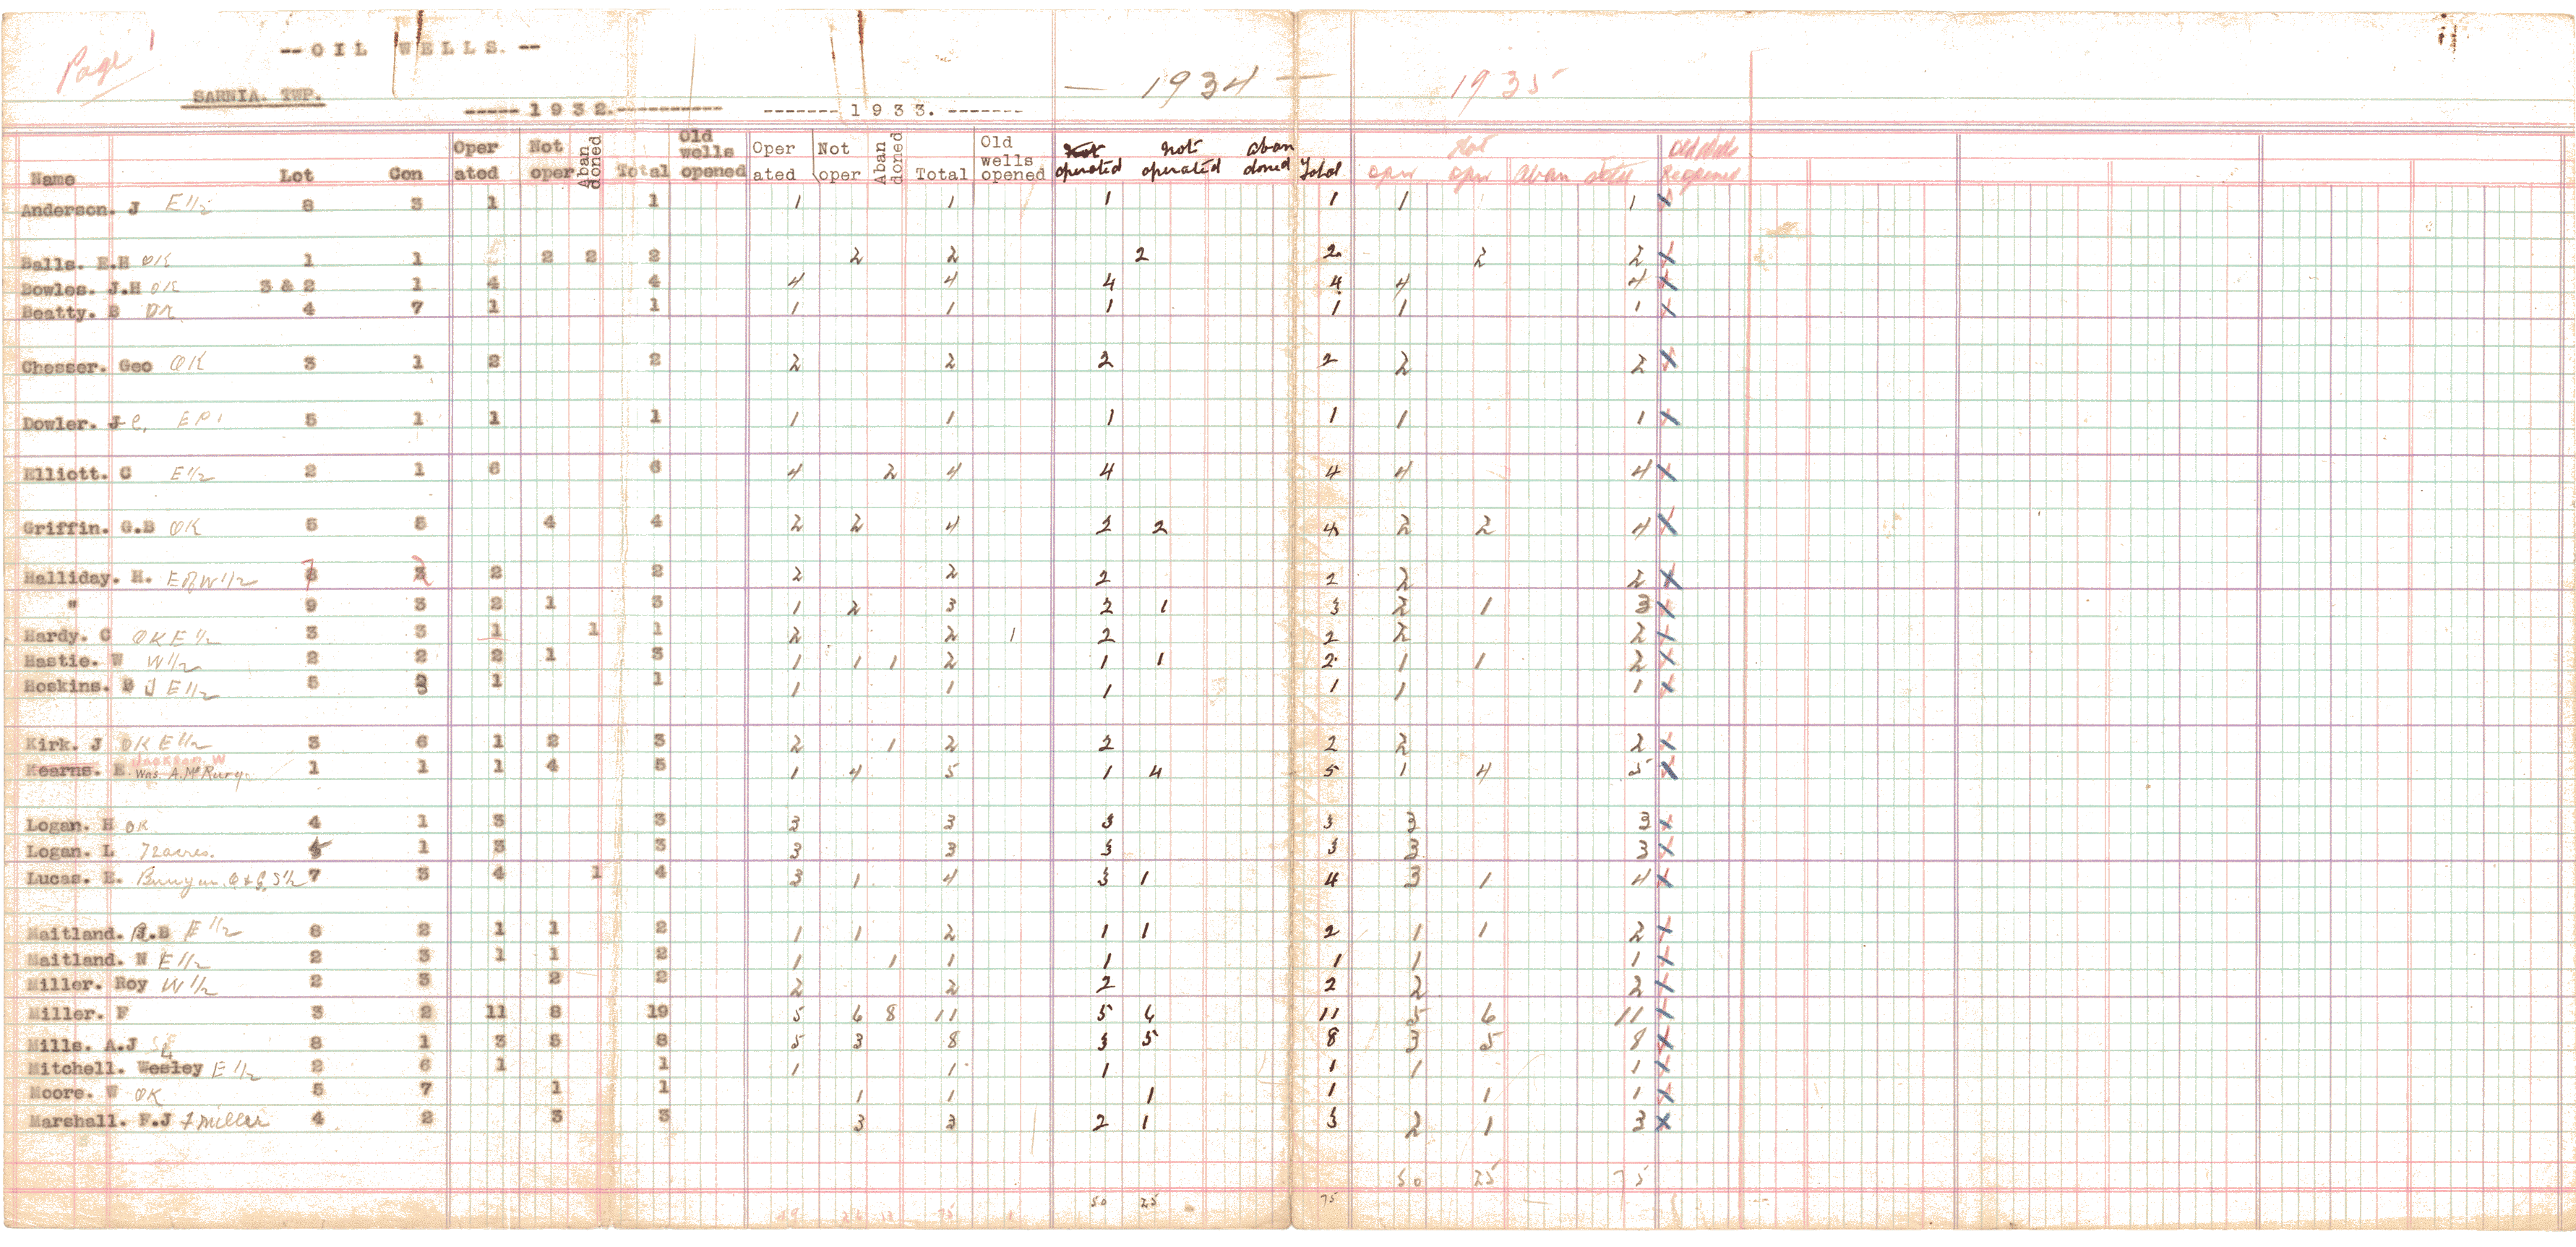 Page 1
--OIL WELLS.--
SARNIA. TWP.
-----1932.---------- -------1933.------- — 1934 — 1935
Name Lot Con Oper ated Not oper Aban doned Total Old wells opened Oper ated Not oper Aban doned Total Old wells opened operated not operated aban doned Total oper Not oper Aban Total Old Wells Reopened
Anderson. J E 1/2 8 3 1 1 1 1 1 1 1 1 x
Balls. E.H OK 1 1 2 2 2 2 2 2 2 2 2 x
Bowles. J.H OK 3 & 2 1 4 4 4 4 4 4 4 4 x
Beatty. B OK 4 7 1 1 1 1 1 1 1 1 x
Chesser. Geo OK 3 1 2 2 2 2 2 2 2 2 x
Dowler. J C. 5 1 1 1 1 1 1 1 1 1 x
Elliott. C E 1/2 2 1 6 6 4 2 4 4 4 4 4 x
Griffin. G.B OK 5 5 4 4 2 2 4 2 2 4 2 2 4 x
Halliday. H. E of W 1/2 7 2 2 2 2 2 2 2 2 2 x
" 9 3 2 1 3 1 2 3 2 1 3 2 1 3 x
Hardy. C OK E 1/2 3 3 1 1 1 2 2 1 2 2 2 2 x
Hastie. W W 1/2 2 2 2 1 3 1 1 1 2 1 1 2 1 1 2 x
Hoskins. B J E 1/2 5 3 1 1 1 1 1 1 1 1 x
Kirk. J OK E 1/2 3 6 1 2 3 2 1 2 2 2 2 2 x
Jackson. W
Kearns. E. Was A. McRury. 1 1 1 4 5 1 4 5 1 4 5 1 4 5 x
Logan. H OK 4 1 3 3 3 3 3 3 3 3 x
Logan. L 72 acres. 5 1 3 3 3 3 3 3 3 3 x
Lucas. E. Bunyan. O & G, S 1/2 7 3 4 1 4 3 1 4 3 1 4 3 1 4 x
Maitland. R.B E 1/2 8 2 1 1 2 1 1 2 1 1 2 1 1 2 x
Maitland. N E 1/2 2 3 1 1 2 1 1 1 1 1 1 1 x
Miller. Roy W 1/2 2 3 2 2 2 2 2 2 2 2 x
Miller. F 3 2 11 8 19 5 6 8 11 5 6 11 5 6 11 x
Mills. A.J 8 1 3 5 8 5 3 8 3 5 8 3 5 8 x
Mitchell. Wesley E 1/2 2 6 1 1 1 1 1 1 1 1 x
Moore. W OK 5 7 1 1 1 1 1 1 1 1 x
Marshall. F.J F Miller 4 2 3 3 3 3 2 1 3 2 1 3 x
50 25 75
49 26 13 75 1 50 25 75